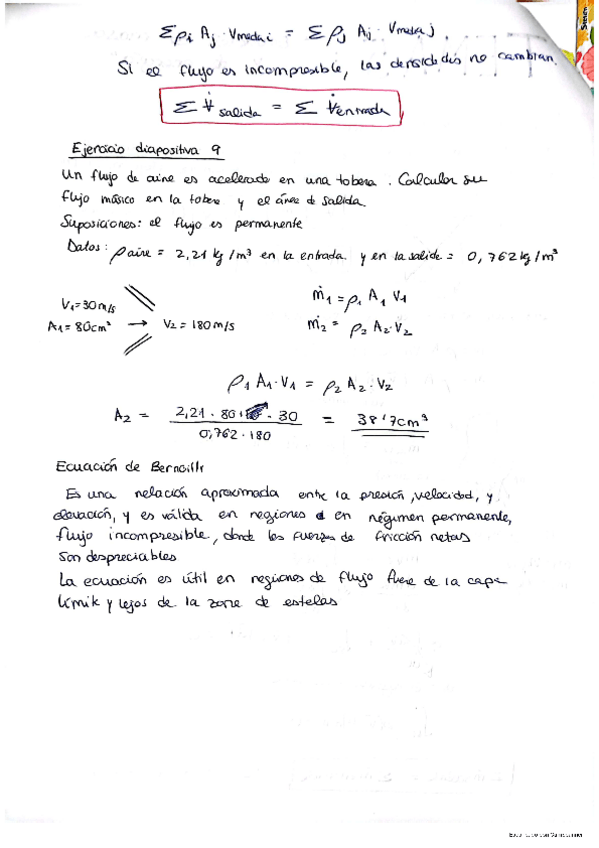 Σρi Aj · Vmedia i = Σ ρj Aj · Vmedia j.
Si el flujo es incompresible, las densidades no cambian.
Σ V̇ salida = Σ V̇entrada
Ejercicio diapositiva 9
Un flujo de aire es acelerado en una tobera. Calcular su
flujo másico en la tobera y el área de salida.
Suposiciones: el flujo es permanente
Datos: ρaire = 2,21 kg/m³ en la entrada y en la salida = 0,762 kg/m³
V1=30m/s
A1=80cm² → V2 = 180m/s
ṁ1 = ρ1 A1 V1
ṁ2 = ρ2 A2·V2
ρ1 A1·V1 = ρ2 A2·V2
A2 = 2,21 · 80 · 30 / 0,762 · 180 = 38'7cm²
Ecuación de Bernoilli
Es una relación aproximada entre la presión, velocidad, y
elevación, y es válida en regiones en régimen permanente,
flujo incompresible, donde las fuerzas de fricción netas
son despreciables
La ecuación es útil en regiones de flujo fuera de la capa
límite y lejos de la zona de estelas